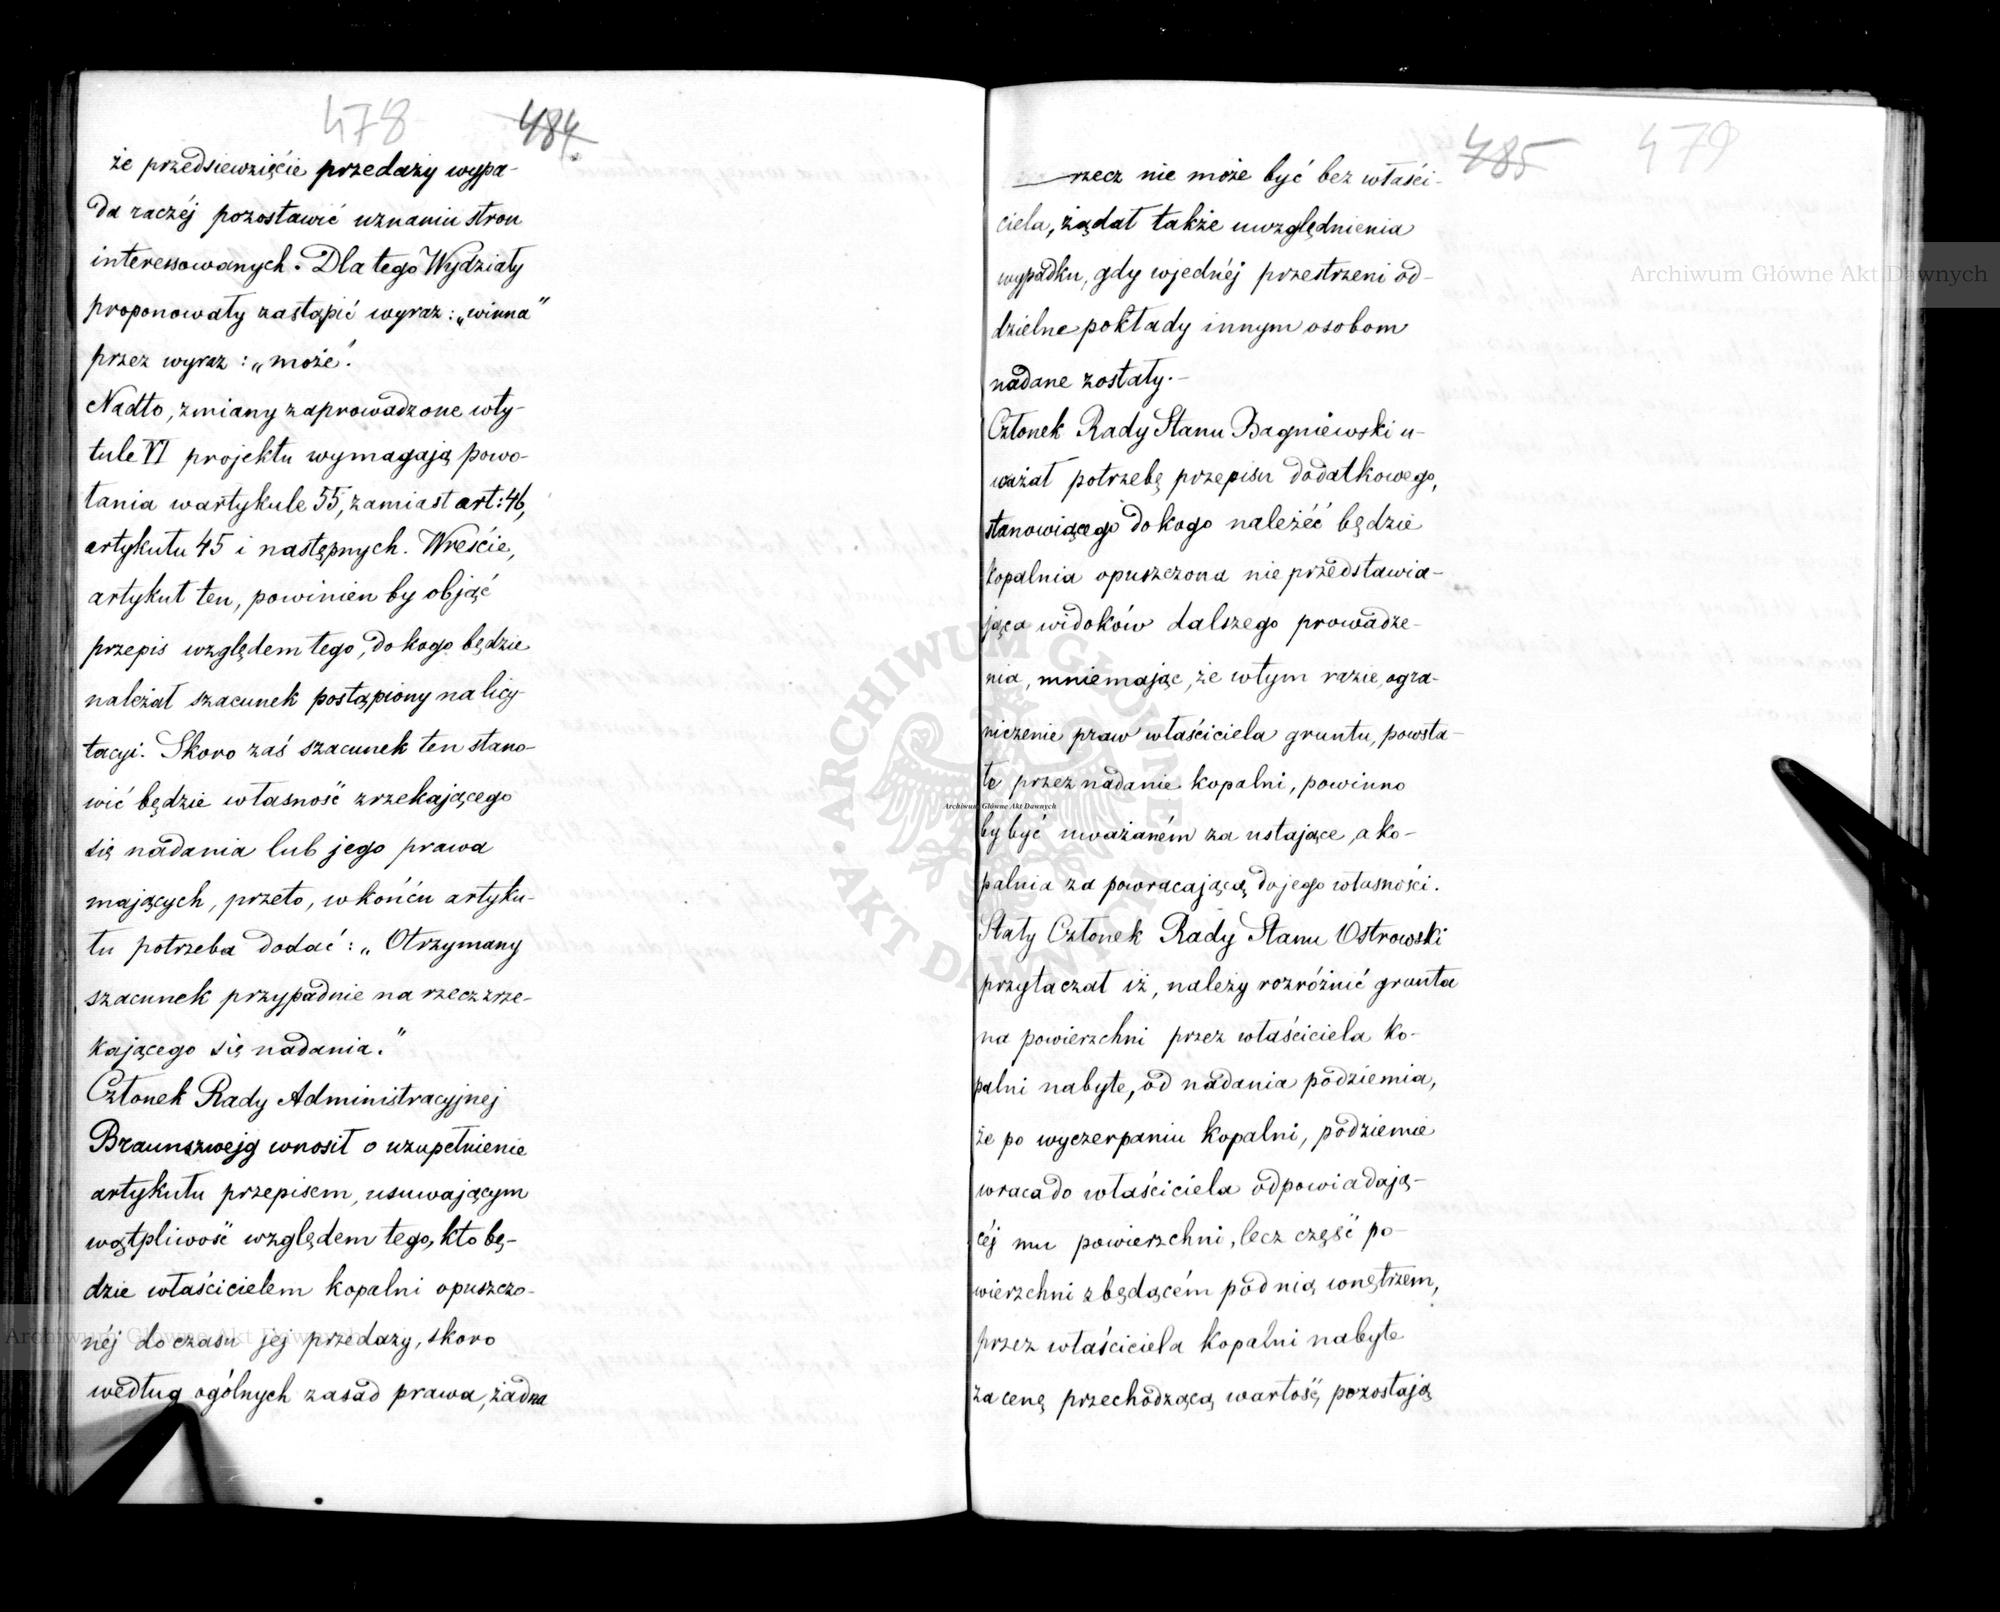 478 484.
że przedsiewzięcie przedaży wypa-
da raczéj pozostawić uznaniu stron
interessowanych. Dla tego Wydziały
proponowały zastąpić wyraz: „winna”
przez wyraz: „może”.
Nadto, zmiany zaprowadzone w ty-
tule VI projektu wymagają powo-
łania w artykule 55, zamiast art: 46,
artykułu 45 i następnych. Wreście,
artykuł ten, powinien by objąć
przepis względem tego, do kogo będzie
należał szacunek postąpiony na licy-
tacyi. Skoro zaś szacunek ten stano-
wić będzie własność zrzekającego
się nadania lub jego prawa
mających, przeto, w końcu artyku-
łu potrzeba dodać: „Otrzymany
szacunek przypadnie na rzecz zrze-
kającego się nadania.”
Członek Rady Administracyjnej
Braunszwejg wnosił o uzupełnienie
artykułu przepisem, usuwającym
wątpliwość względem tego, kto bę-
dzie właścicielem kopalni opuszczo-
néj do czasu jéj przedaży, skoro
według ogólnych zasad prawa, żadna
485 479
rzecz nie może być bez właści-
ciela, żądał także uwzględnienia
wypadku, gdy w jednéj przestrzeni od-
dzielne pokłady innym osobom
nadane zostały.-
Członek Rady Stanu Bagniewski u-
ważał potrzebę przepisu dodatkowego,
stanowiącego do kogo należéć będzie
kopalnia opuszczona nie przedstawia-
jąca widoków dalszego prowadze-
nia, mniemając, że w tym razie, ogra-
niczenie praw właściciela gruntu, powsta-
łe przez nadanie kopalni, powinno
by być uważaném za ustające, a ko-
palnia za powracającą do jego własności.
Stały Członek Rady Stanu Ostrowski
przytaczał iż, należy rozróżnić grunta
na powierzchni przez właściciela ko-
palni nabyte, od nadania podziemia,
że po wyczerpaniu kopalni, podziemie
wraca do właściciela odpowiadają-
céj mu powierzchni, lecz część po-
wierzchni z będącém pod nią wnętrzem,
przez właściciela kopalni nabyte
za cenę przechodzącą wartość, pozostają
Archiwum Główne Akt Dawnych
Archiwum Główne Akt Dawnych
ARCHIWUM GŁÓWNE AKT DAWNYCH
Archiwum Główne Akt Dawnych